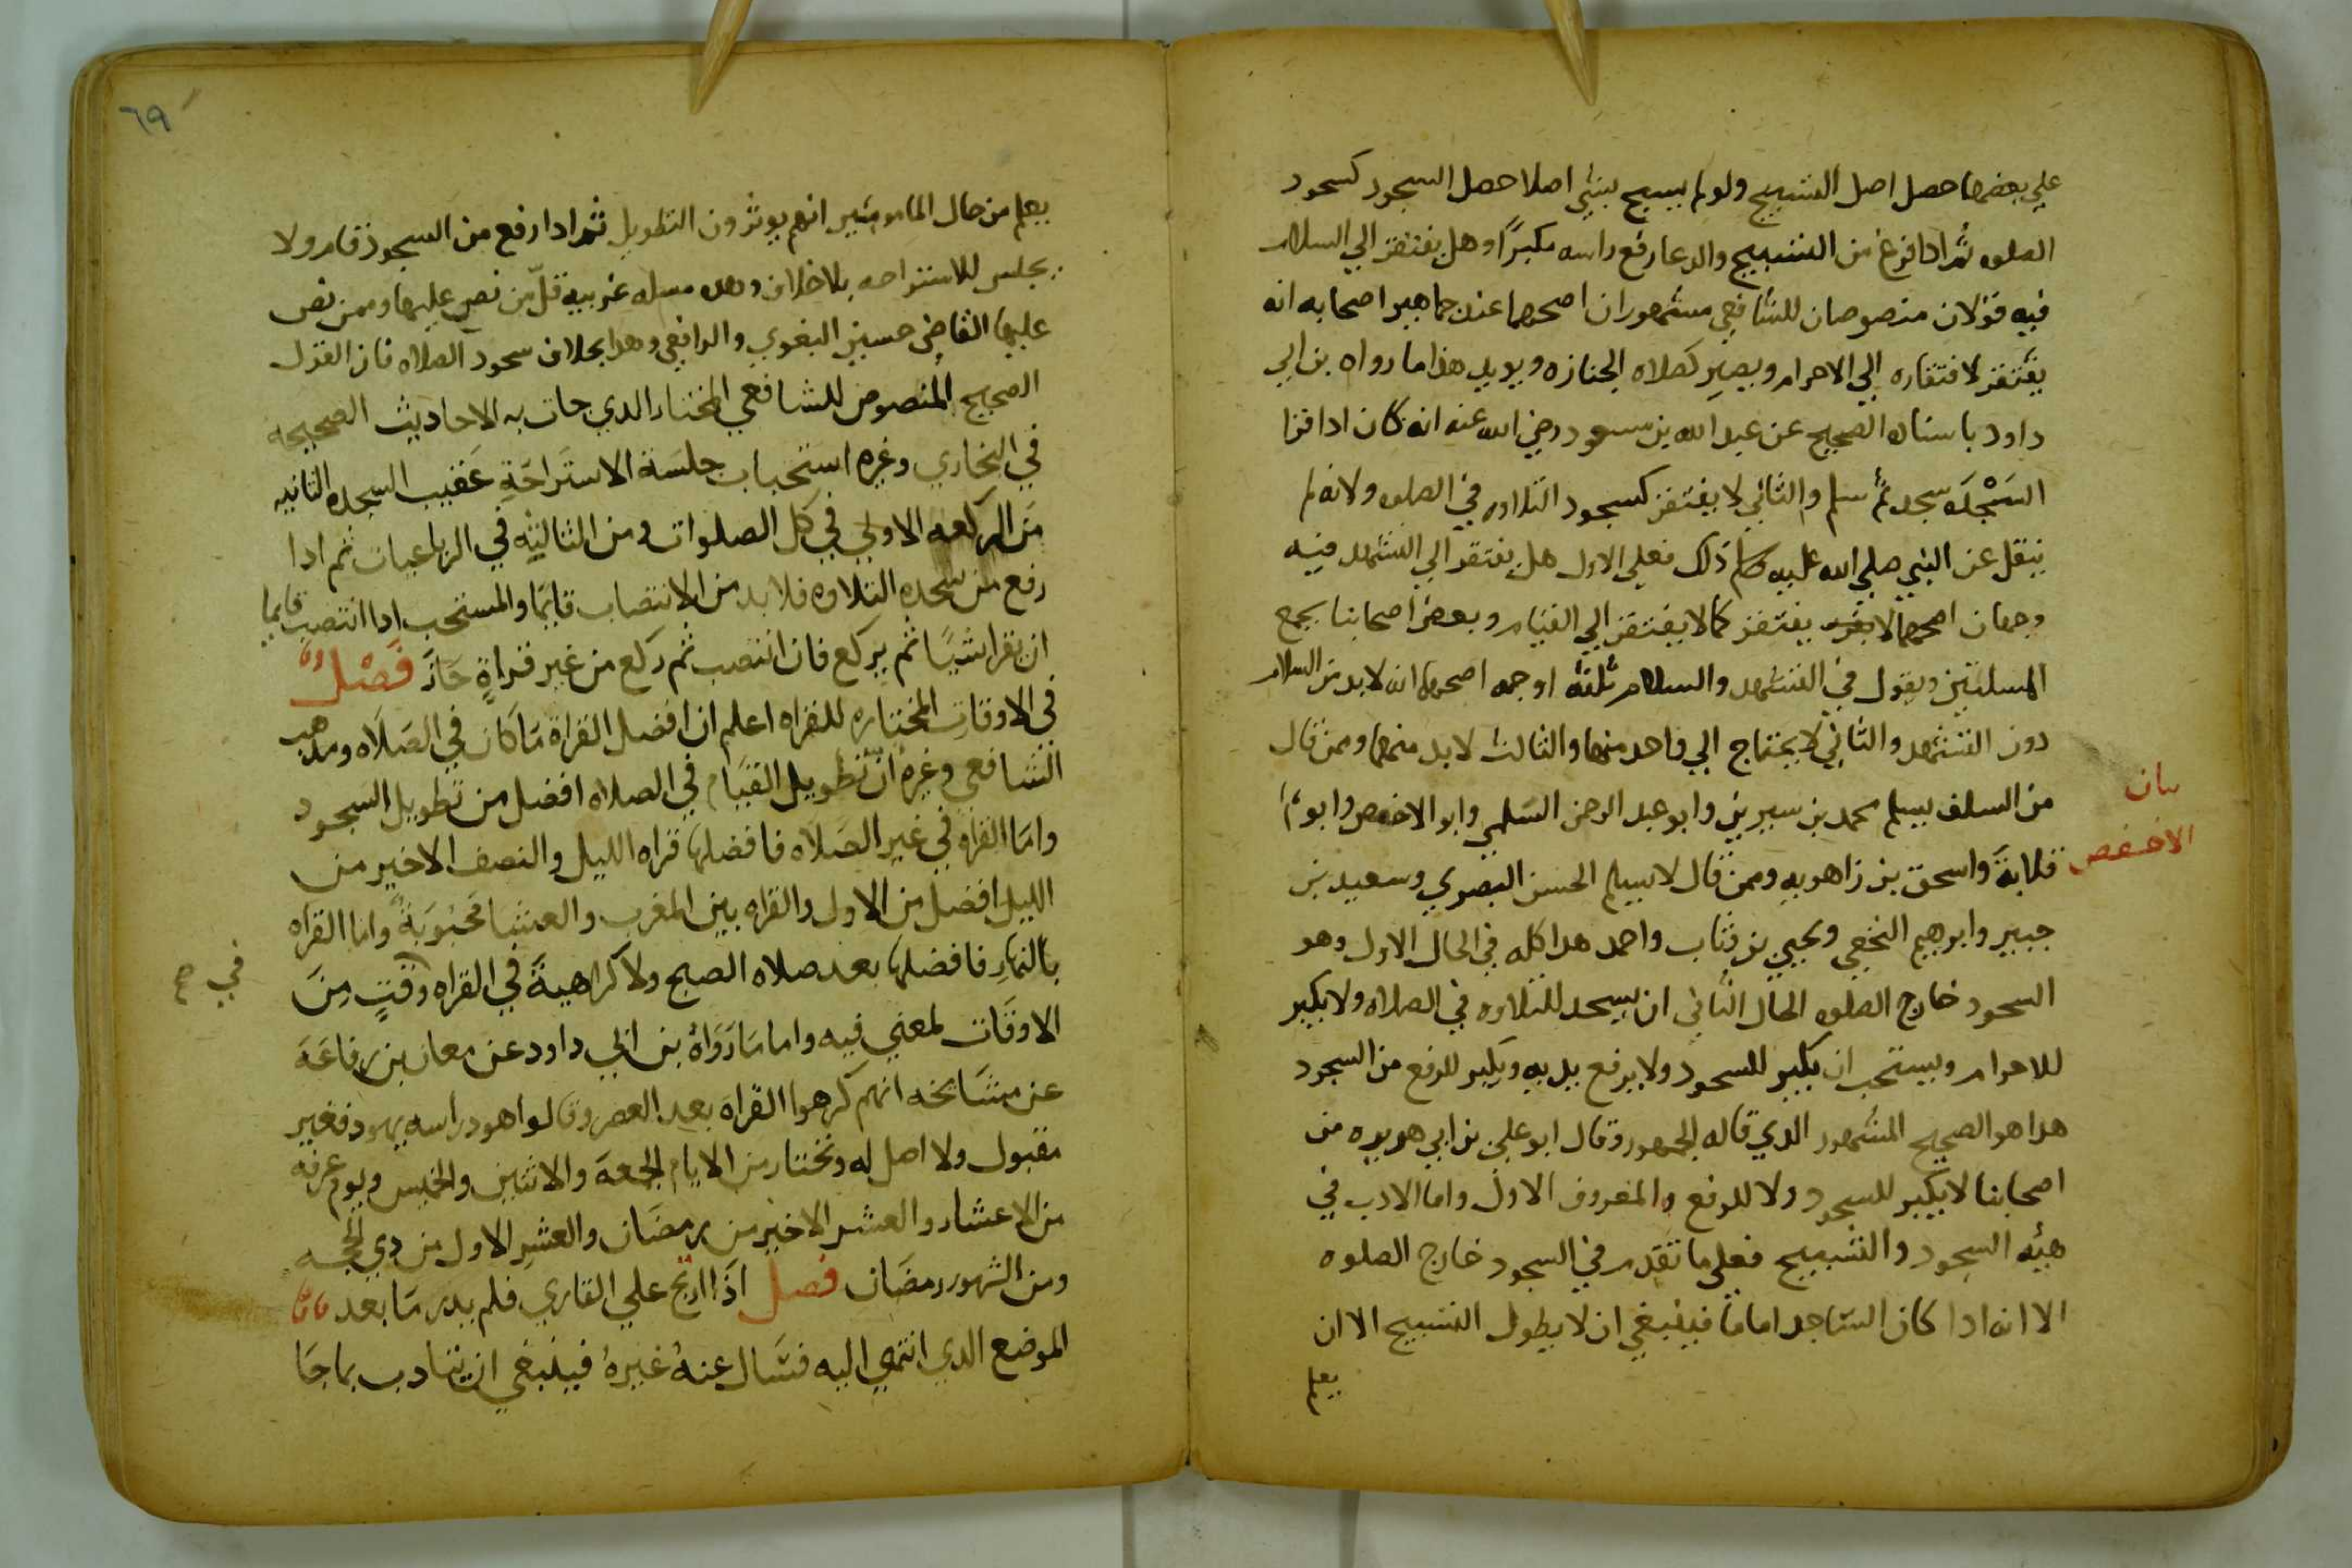 علي بعضها حصل اصل التسبيح ولو لم يسبح بشي اصلا حصل السجود كسجود
الصلوه ثم ادا فرغ من التسبيح والدعا رفع راسه مكبرًا وهل يفتقر الي السلام
فيه قولان منصوصان للشافعي مشهوران اصحهما عند جماهير اصحابه انه
يفتقر لافتقاره الي الاحرام ويصير كصلاه الجنازه ويويد هذا ما رواه بن ابي
داود باسناده الصحيح عن عبد الله بن مسعود رضي الله عنه انه كان ادا قرا
السَجْدَه سجد ثم سلم والثاني لا يفتقر كسجود التلاوه في الصلوه ولانه لم
ينقل عن النبي صلي الله عليه وسلم ذلك فعلي الاول هل يفتقر الي التشهد فيه
وجهان اصحهما لا يفتقر كما لا يفتقر الي القيام وبعض اصحابنا يجمع
المسلتين ويقول في التشهد والسلام ثلثه اوجه اصحها انه لا بد من السلام
دون التشهد والثاني لا يحتاج الي واحد منهما والثالث لا بد منهما وممن قال
من السلف يسلم محمد بن سيرين وابو عبد الرحمن السَلمي وابو الاخفص وابو
قلابةَ واسحق بن زاهويه وممن قال لا يسلم الحسن البصري وسعيد بن
جبير وابرهيم النخعي ويحيي بن وثاب واحمد هدا كله في الحال الاول وهو
السحود خارج الصلوه الحال الثاني ان يسحد للتلاوه في الصلاه ولا يكبر
للاحرام ويستحب ان يكبر للسحود ولا يرفع يديه ويكبر للرفع من السجود
هدا هو الصحيح المشهور الدي قاله الجمهور وقال ابو علي بن ابي هريره من
اصحابنا لا يكبر للسجود ولا للرفع والمعروف الاول واما الادب في
هيئه السجود والتسبيح فعلي ما تقدم في السجود خارج الصلوه
الا انه ادا كان السّاجد امامًا فينبغي ان لا يطول التسبيح الا ان
يعلم
الاخفص
٦٩
يعلم من حال المامومين انهم يوثرون التطويل ثم ادا رفع من السجود قام ولا
يجلس للاستراحه بلاخلاف وهده مسله غريبه قلّ من نص عليها وممن نص
عليها القاضي حسين البغوي والرافعي وهدا بخلاف سحود الصلاه فان القول
الصحيح المنصوص للشافعي المختار الدي جات به الاحاديث الصحيحه
في البخاري وغيره استحباب جلسَة الاستَراحَةِ عَقيب السجده الثانيه
مَن الركعه الاولي في كل الصلوات ومن الثالثيه في الرباعيات ثم ادا
رفع من سجده التلاوه فلا بد من الانتصاب قايمًا والمستحب ادا انتصب قايما
ان يقرا شيًا ثم يركع فان انتصب ثم ركع من غير قراةٍ جَازَ فَصْلٌ
في الاوقات المختاره للقراه اعلم ان افضل القراة مَا كان في الصَلَاه ومدهب
الشافعي وغيره انّ تطويل القيَام في الصلاه افضل من تطويل السَجود
وامَا القراه في غير الصَلَاه فافضلها قراه الليل والنصف الاخير من
الليل افضل من الاول والقراه بين المغرب والعشا محبُوبَةٌ واما القراه
بالنهارِ فافضلها بعد صلاه الصبح ولا كراهيةَ في القراه وقتٍ مِنَ
في صح
الاوقَات لمعني فيه واما مَا رَوَاهُ بن ابي داود عن معان بن رفاعَةَ
عن مشَائخه انهم كرهوا القراه بعد العصر وقالوا هو دراسه يهود فغير
مقبول ولا اصل له ونختار من الايام الجمعَة والاثنين والخميس ويوم عرفه
من الاعشار والعشر الاخير من رمضَان والعشرِ الاول من دي الحجه
ومن الشهور رمضَان فصل اذَا ارتج علي القاري فلم يدر مَا بعد
الموضع الدي انتهي اليه فسَال عنهُ غيرهُ فينبغي ان يتادب بما جَا